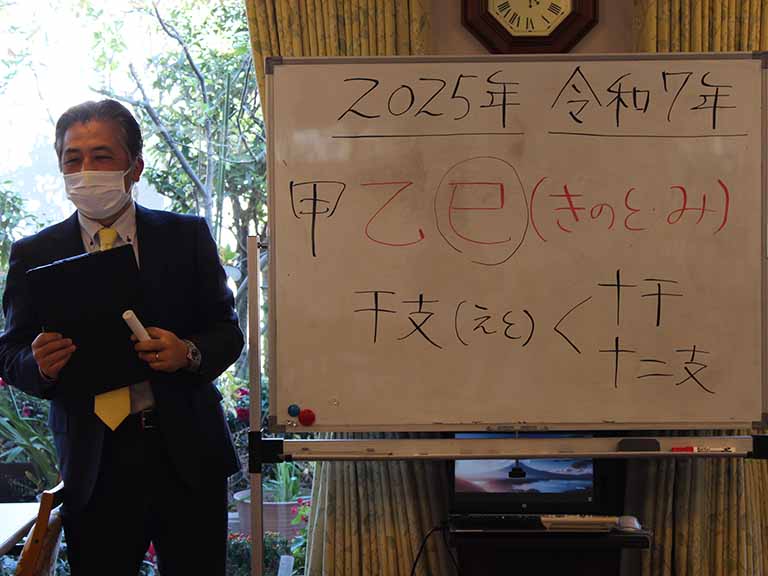 2025年 令和7年
甲 乙 巳 (きのと・み)
干支(えと) < 十干
十二支